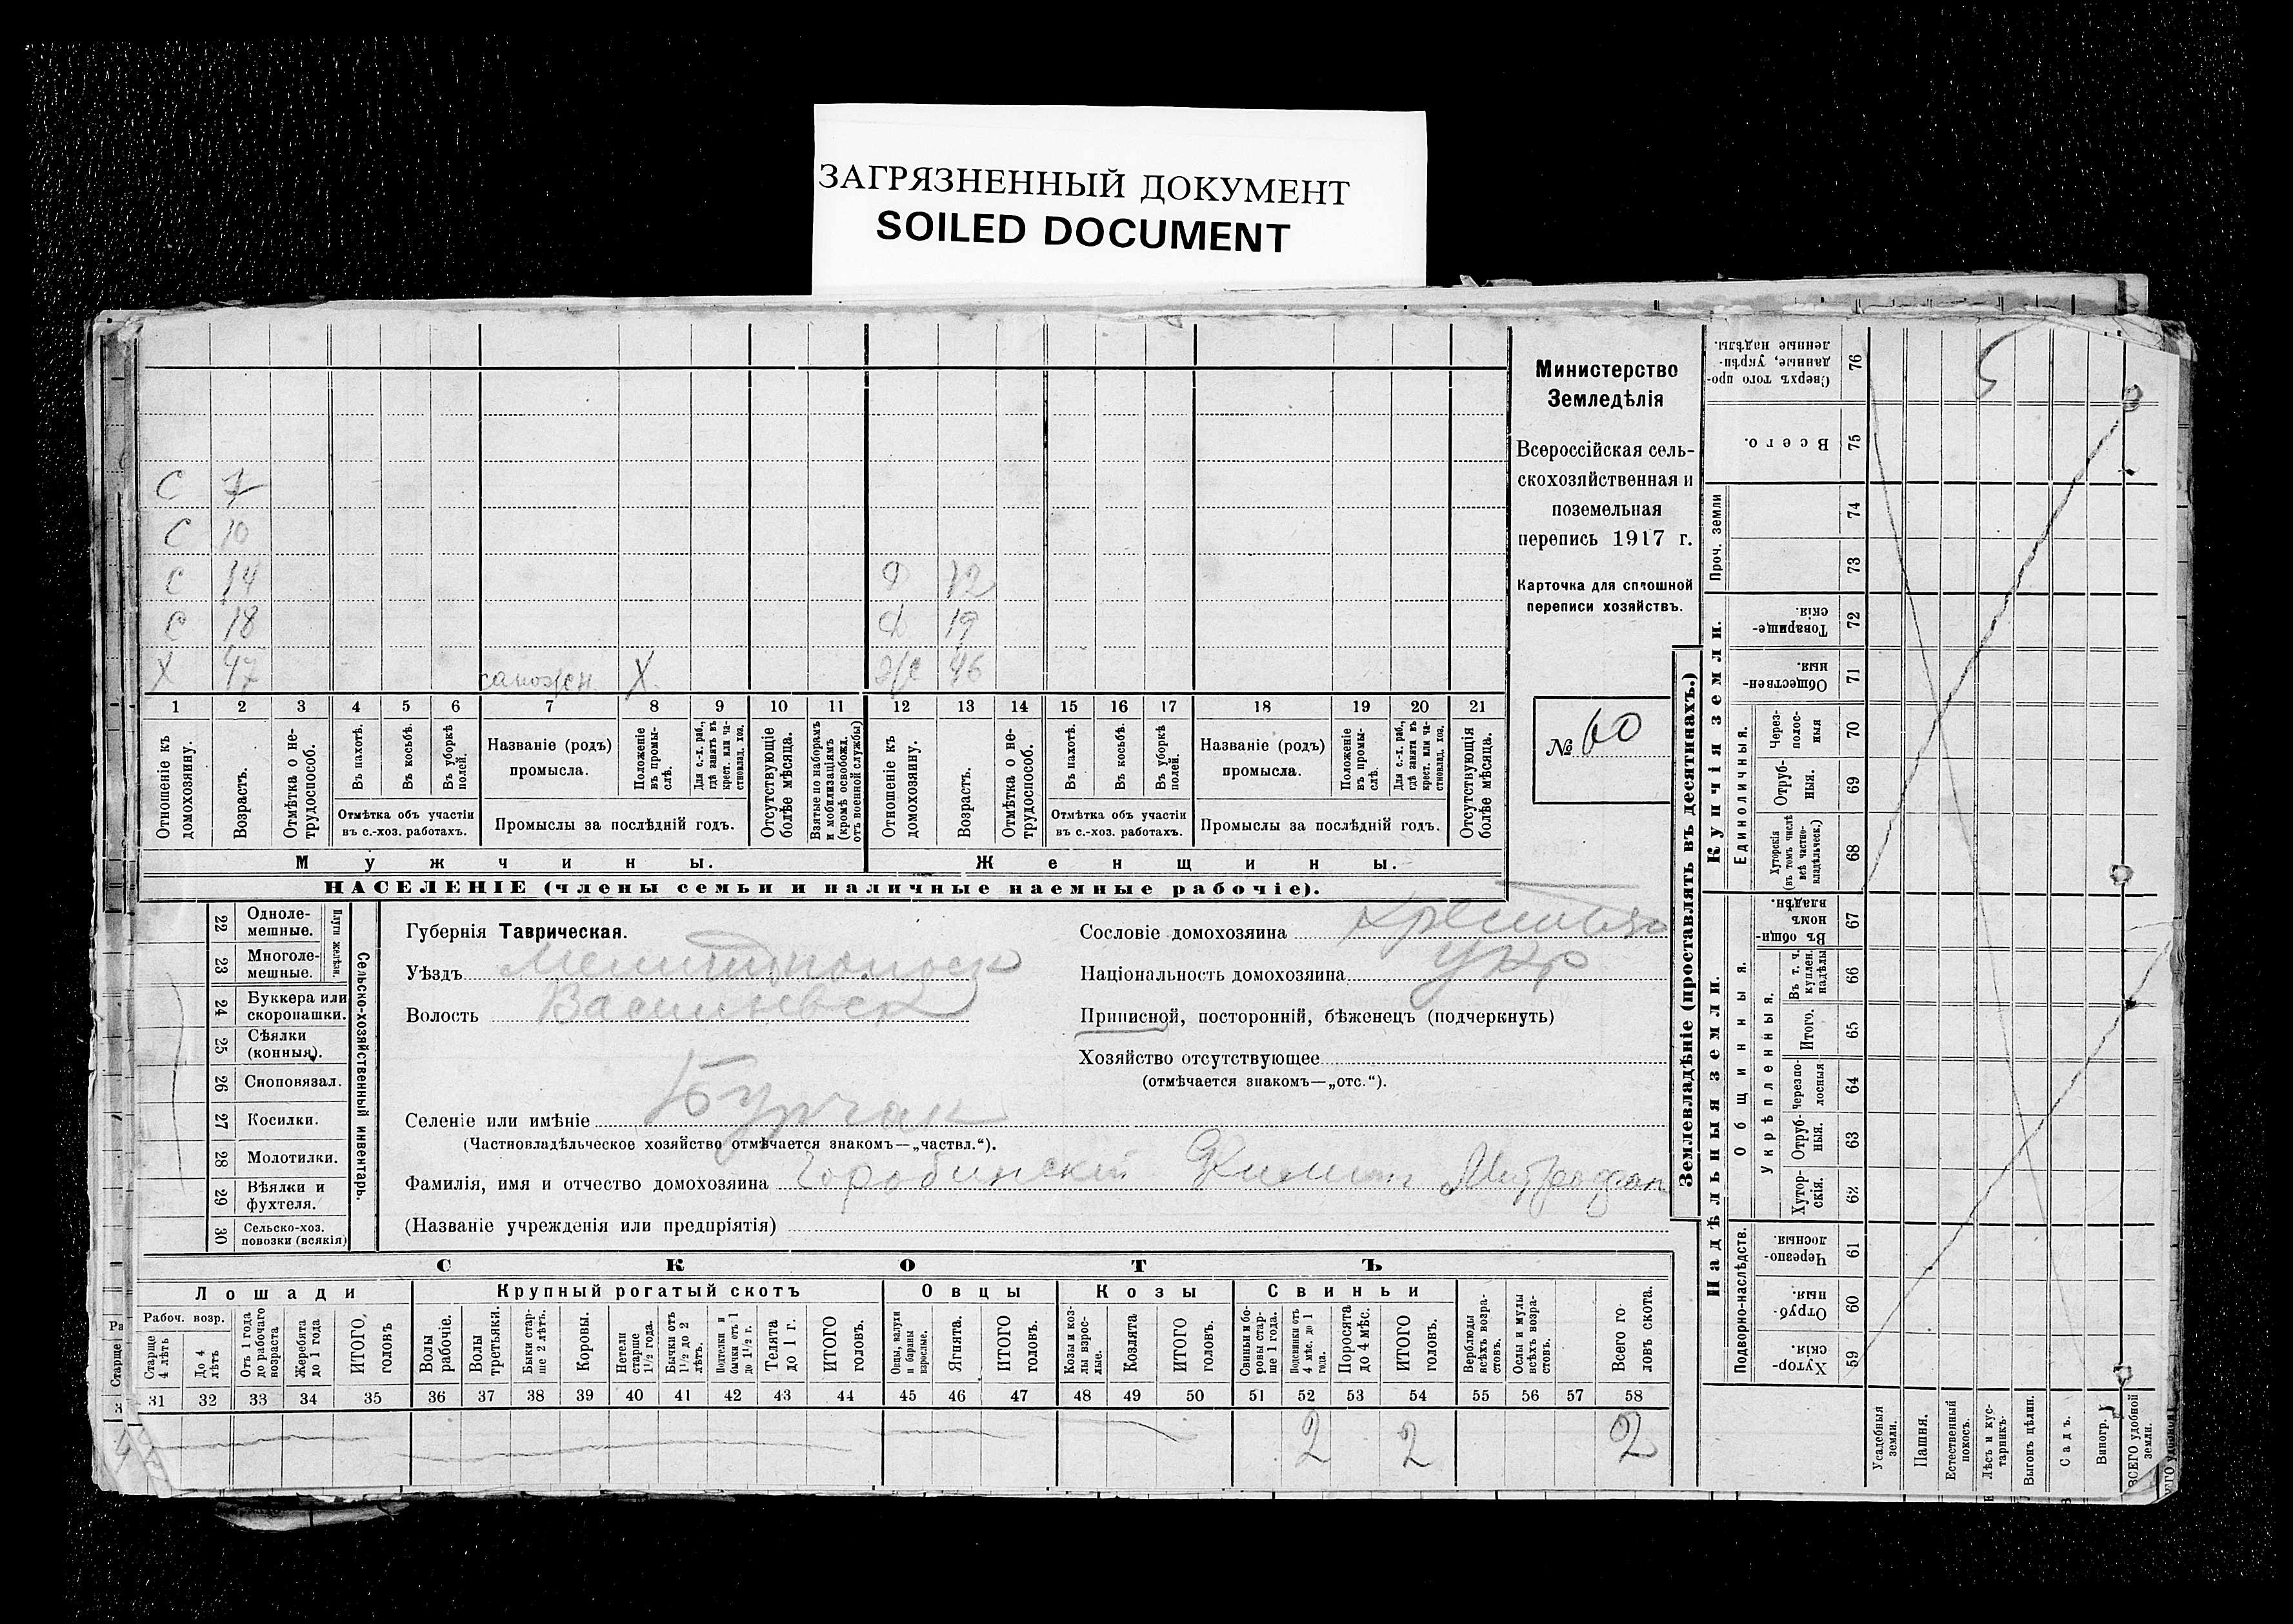 ЗАГРЯЗНЕННЫЙ ДОКУМЕНТ
SOILED DOCUMENT
С 7
С 10
С 14 Д 12
С 18 Д 19
Х 47 сапожн Х Ж 46
1 2 3 4 5 6 7 8 9 10 11 12 13 14 15 16 17 18 19 20 21
Отношеніе къ домохозяину.
Возрастъ.
Отмѣтка о нетрудоспособ.
Въ пахотѣ.
Въ косьбѣ.
Въ уборкѣ полей.
Отмѣтка объ участіи въ с.-хоз. работахъ.
Названіе (родъ) промысла.
Положеніе въ промыслѣ.
Для с.-х. раб., гдѣ занятъ въ крест. или частновлад. хоз.
Промыслы за послѣдній годъ.
Отсутствующіе болѣе мѣсяца.
Взятые по наборамъ и мобилизаціямъ (кромѣ освобожд. отъ военной службы)
Отношеніе къ домохозяину.
Возрастъ.
Отмѣтка о нетрудоспособ.
Въ пахотѣ.
Въ косьбѣ.
Въ уборкѣ полей.
Отмѣтка объ участіи въ с.-хоз. работахъ.
Названіе (родъ) промысла.
Положеніе въ промыслѣ.
Для с.-х. раб., гдѣ занята въ крест. или частновлад. хоз.
Промыслы за послѣдній годъ.
Отсутствующія болѣе мѣсяца.
Мужчины. Женщины.
НАСЕЛЕНІЕ (члены семьи и наличные наемные рабочіе).
Министерство
Земледѣлія
Всероссійская сель-
скохозяйственная и
поземельная
перепись 1917 г.
Карточка для сплошной
переписи хозяйствъ.
№ 60
22 Однолемешные.
23 Многолемешные.
Плуги желѣзн.
24 Буккера или скоропашки.
25 Сѣялки (конныя).
26 Сноповязал.
27 Косилки.
28 Молотилки.
29 Вѣялки и фухтеля.
30 Сельско-хоз. повозки (всякія)
Сельско-хозяйственный инвентарь.
Губернія Таврическая.
Уѣздъ Мелитопольск
Волость Васильевск
Селеніе или имѣніе Бурчак
(Частновладѣльческое хозяйство отмѣчается знакомъ—„частвл.“).
Фамилія, имя и отчество домохозяина Горобинскій Митрофан
(Названіе учрежденія или предпріятія)
Сословіе домохозяина Крестьян
Національность домохозяина Укр
Приписной, посторонній, бѣженецъ (подчеркнуть)
Хозяйство отсутствующее
(отмѣчается знакомъ—„отс.“).
СКОТЪ
Лошади Крупный рогатый скотъ Овцы Козы Свиньи
Рабоч. возр.
Старше 4 лѣтъ
До 4 лѣтъ
Отъ 1 года до рабочаго возраста
Жеребята до 1 года
ИТОГО, головъ
Волы рабочіе.
Волы третьяки.
Быки старше 2 лѣтъ.
Коровы.
Нетели старше 1½ года.
Бычки отъ 1½ до 2 лѣтъ.
Подтелки и бычки отъ 1 до 1½ г.
Телята до 1 г.
ИТОГО головъ.
Овцы, валухи и бараны взрослые.
Ягнята.
ИТОГО головъ.
Козы и козлы взрослые.
Козлята
ИТОГО головъ.
Свиньи и боровы старше 1 года.
Подсвинки отъ 4 мѣс. до 1 года.
Поросята до 4 мѣс.
ИТОГО головъ.
Верблюды всѣхъ возрастовъ.
Ослы и мулы всѣхъ возрастовъ.
Всего головъ скота.
31 32 33 34 35 36 37 38 39 40 41 42 43 44 45 46 47 48 49 50 51 52 53 54 55 56 57 58
2 2 2
Землевладѣніе (проставлять въ десятинахъ.)
Сверхъ того проданные, укрѣпленные надѣлы. 76
Всего. 75
Проч. земли 74
73
Купчія земли.
Товарищескія. 72
Общественныя. 71
Единоличныя.
Черезполосныя 70
Отрубныя. 69
Хуторскія (въ томъ числѣ всѣ частновладѣльческ.) 68
Надѣльныя земли.
Общинныя.
Въ общинномъ владѣн. 67
Укрѣпленныя.
Въ т. ч. куплен. надѣлы 66
Итого. 65
Черезполосныя 64
Отрубныя. 63
Хуторскія. 62
Подворно-наслѣдств.
Черезполосныя 61
Отрубныя 60
Хуторскія. 59
Усадебныя земли.
Пашня.
Естественный покосъ.
Лѣсъ и кустарникъ.
Выгонъ цѣлин.
Садъ.
Виногр.
ВСЕГО удобной земли.